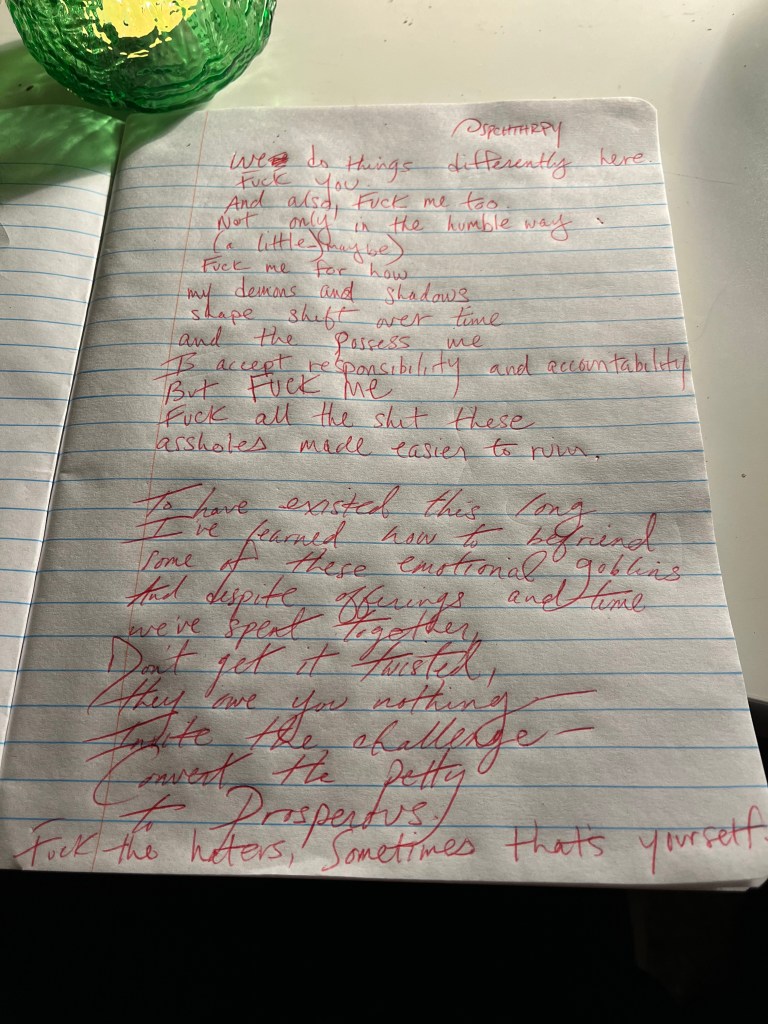 PSPCHTHRPY
We do things differently here.
Fuck you
And also, Fuck me too.
Not only in the humble way
(a little-(maybe)
Fuck me for how
my demons and shadows
shape shift over time
and the possess me
To accept responsibility and accountability
But FUCK me
Fuck all the shit these
assholes made easier to ruin.
To have existed this long
I've learned how to befriend
some of these emotional goblins
And dispite offerings and time
we've spent together,
Don't get it twisted,
they owe you nothing—
Invite the challenge—
Convert the petty
to Prosperous.
Fuck the haters, Sometimes that's yourself.